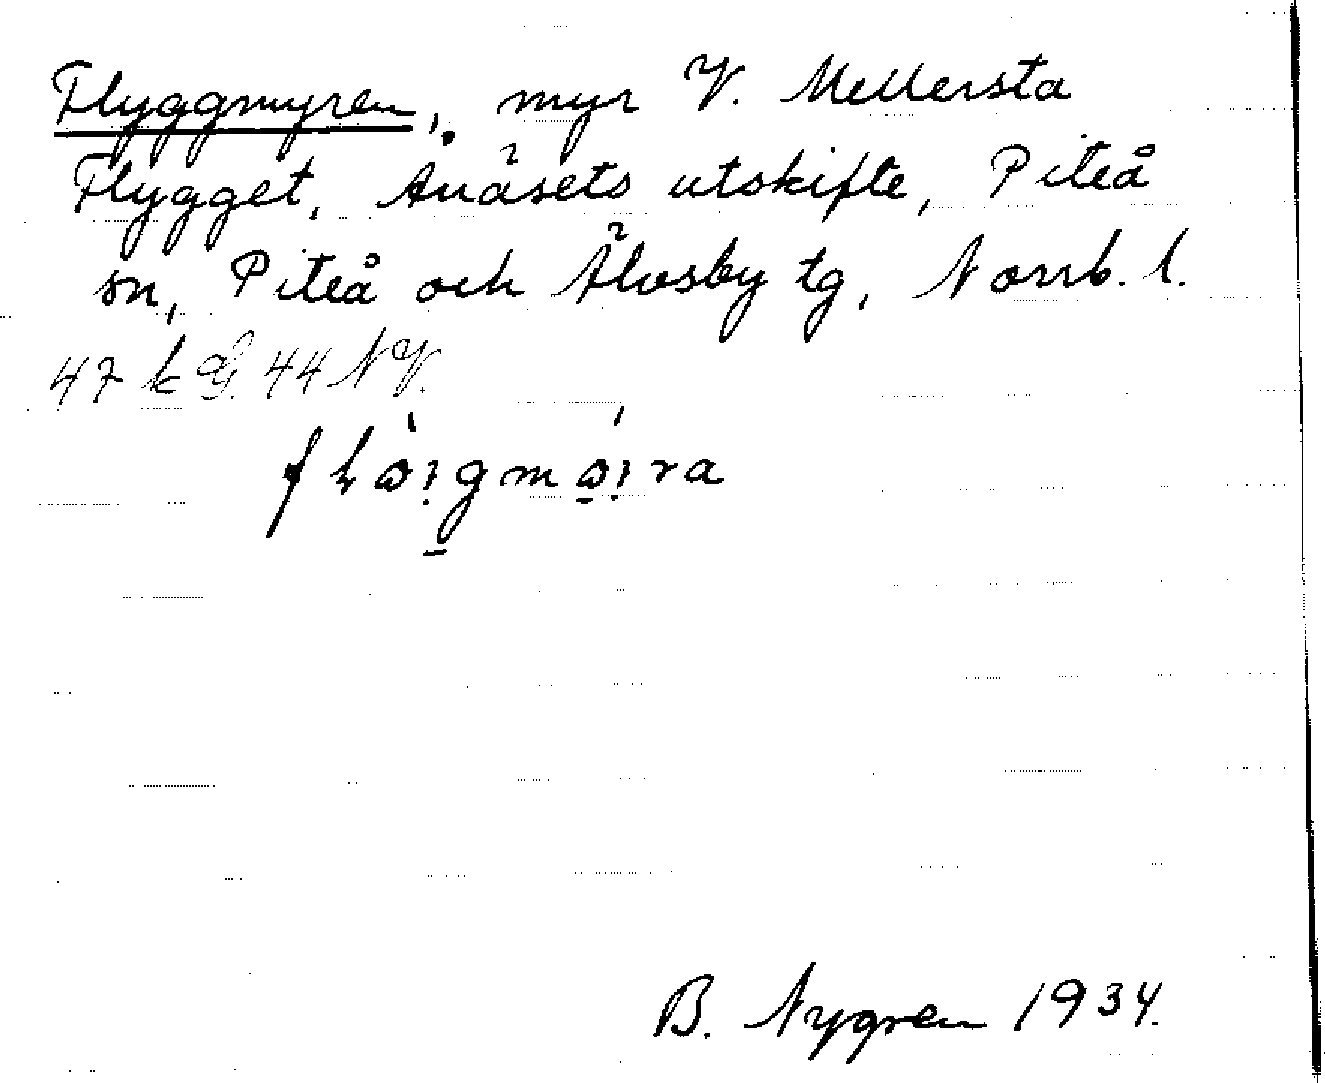 Flyggmyren, myr V. Mellersta
Flygget, Anåsets utskifte, Piteå
sn, Piteå och Älvsby tg, Norrb. l.
47 k G. 44 NV.
B. Nygren 1934.